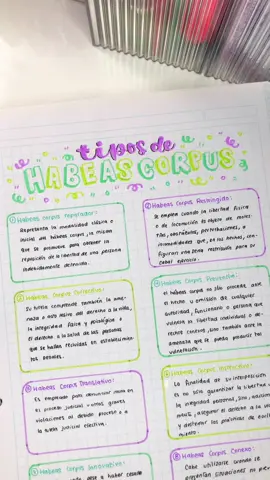 tipos de
HABEAS CORPUS
① Habeas Corpus Reparador:
Representa la modalidad clásica o
inicial del hábeas corpus, la misma
que se promueve para obtener la
reposición de la libertad de una persona
indebidamente detenida.
② Habeas Corpus Restringido:
Se emplea cuando la libertad física
o de locomoción es objeto de moles-
tias, obstáculos, perturbaciones, o
incomodidades que, en los hechos, con-
figuran una seria restricción para su
cabal ejercicio.
Habeas Corpus Correctivo:
Su tutela comprende también la ame-
naza o acto lesivo del derecho a la vida,
la integridad física y psicológica o
el derecho a la salud de las personas
que se hallan recluidas en establecimien-
tos penales.
Habeas Corpus Preventivo:
El hábeas corpus no sólo procede ante
el hecho u omisión de cualquier
autoridad, funcionario o persona que
vulnera la libertad individual o de-
rechos conexos, sino también ante la
amenaza que se pueda producir tal
vulneración.
Habeas Corpus Traslativo:
Es empleado para denunciar mora en
el proceso judicial u otras graves
violaciones al debido proceso o a
la tutela judicial efectiva.
Habeas Corpus
La finalidad de su interposición
es no sólo garantizar la libertad
la integridad personal, sino,
asegurar el derecho a la
y desterrar las prácticas de
Habeas Corpus Innovativo:
Habeas Corpus Conexo:
Cabe utilizarse cuando se
presentan situaciones no